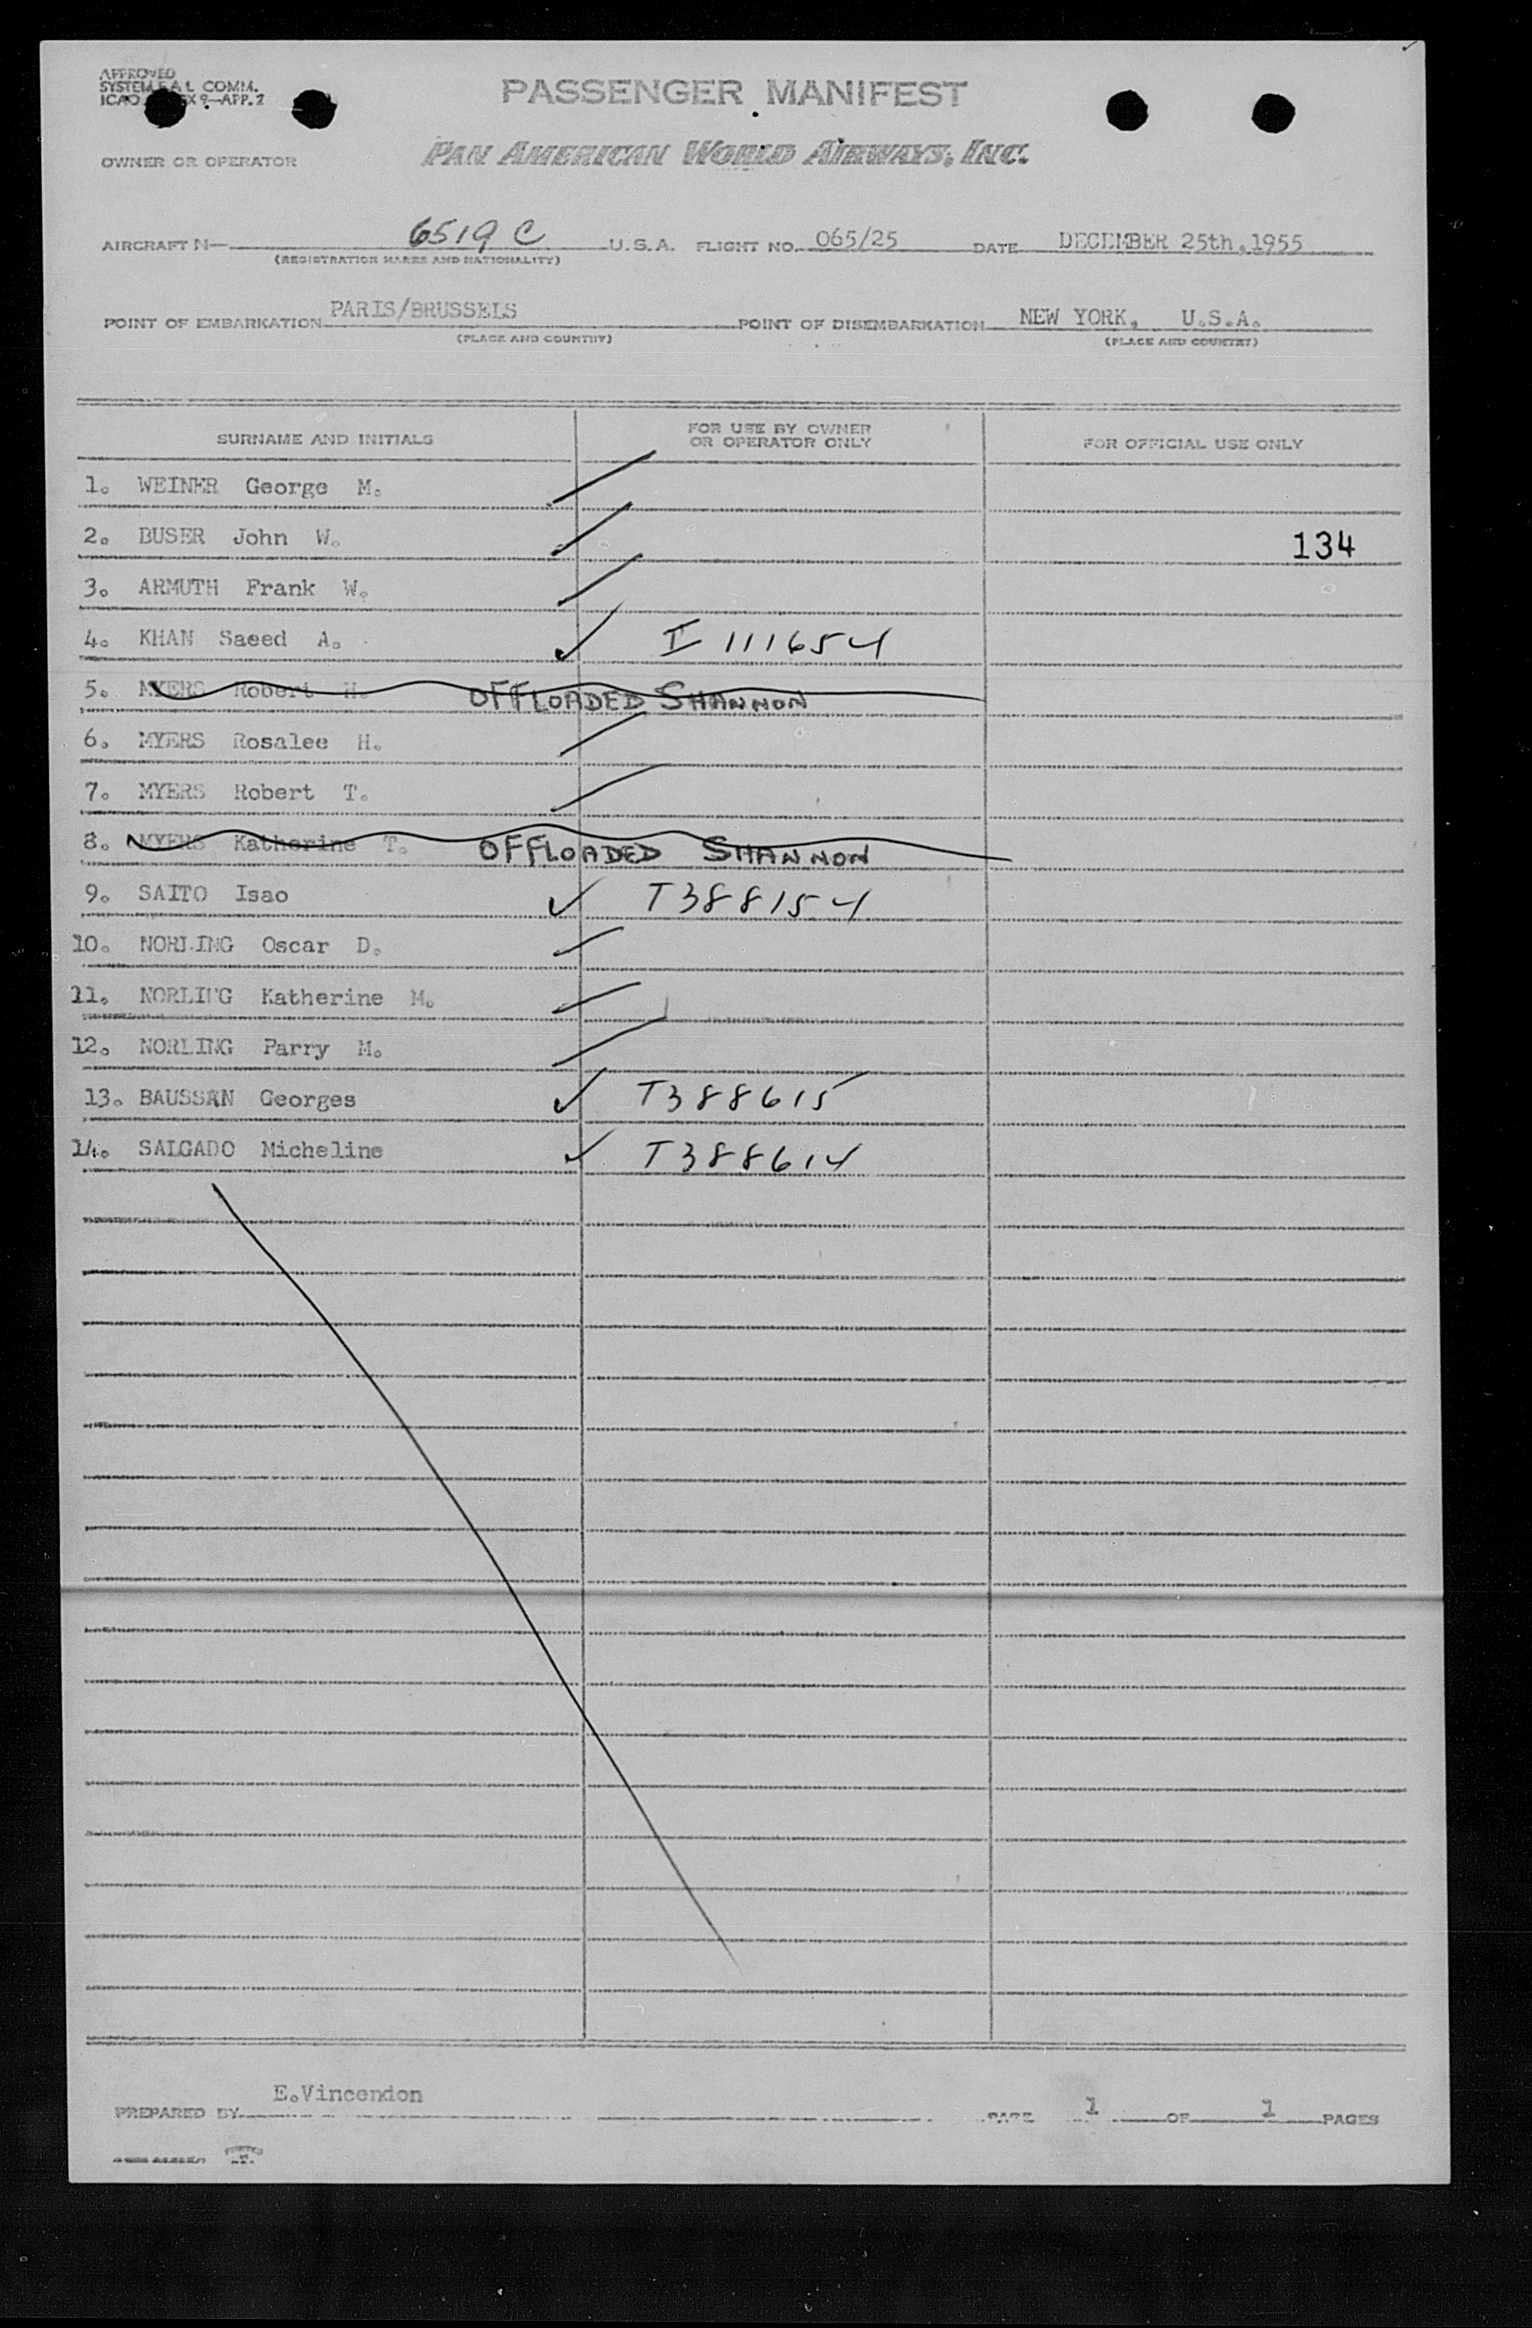 APPROVED
SYSTEM F.A.L COMM.
ICAO X 9—APP. 2
PASSENGER MANIFEST
OWNER OR OPERATOR PAN AMERICAN WORLD AIRWAYS, INC.
AIRCRAFT N— 6519 C U.S.A. FLIGHT NO. 065/25 DATE DECEMBER 25th, 1955
(REGISTRATION MARKS AND NATIONALITY)
POINT OF EMBARKATION PARIS/BRUSSELS POINT OF DISEMBARKATION NEW YORK, U.S.A.
(PLACE AND COUNTRY) (PLACE AND COUNTRY)
SURNAME AND INITIALS FOR USE BY OWNER OR OPERATOR ONLY FOR OFFICIAL USE ONLY
1. WEINER George M.
2. BUSER John W. 134
3. ARMUTH Frank W.
4. KHAN Saeed A. I 111654
5. MYERS Robert H. OFFLOADED SHANNON
6. MYERS Rosalee H.
7. MYERS Robert T.
8. MYERS Katherine T. OFFLOADED SHANNON
9. SAITO Isao T388154
10. NORLING Oscar D.
11. NORLING Katherine M.
12. NORLING Parry M.
13. BAUSSAN Georges T388615
14. SALGADO Micheline T388614
PREPARED BY E.Vincendon PAGE 1 OF 1 PAGES